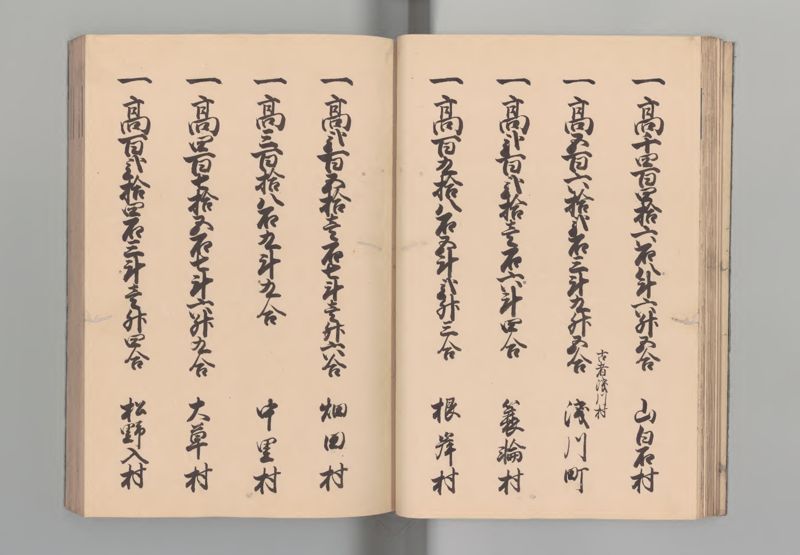 一 高千四百四拾六石八斗六升五合 山白石村
一 高五百六拾弐石三斗九升五合 浅川町
古者浅川村
一 高弐百弐拾壱石六斗四合 蓑輪村
一 高百九拾八石五斗弐升三合 根岸村
一 高弐百五拾壱石七斗壱升六合 畑田村
一 高三百拾八石九斗九合 中里村
一 高四百七拾五石七斗六升九合 大草村
一 高百弐拾四石三斗壱升四合 松野入村